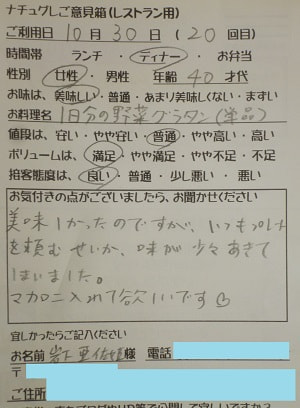 ナチュグしご意見箱(レストラン用)
ご利用日 10月30日(20回目)
時間帯 ランチ・ディナー・お弁当
性別 女性・男性 年齢 40才代
お味は、美味しい・普通・あまり美味しくない・まずい
お料理名 1日分の野菜グラタン(単品)
値段は、安い・やや安い・普通・やや高い・高い
ボリュームは、満足・やや満足・やや不足・不足
接客態度は、良い・普通・少し悪い・悪い
お気付きの点がございましたら、お聞かせください
美味しかったのですが、いつもプレーン
を頼むせいか、味が少々あきて
しまいました。
マカロニ入れて欲しいです♡
宜しかったらご記入ください
お名前 岩下 亜佑姫様 電話
〒
ご住所